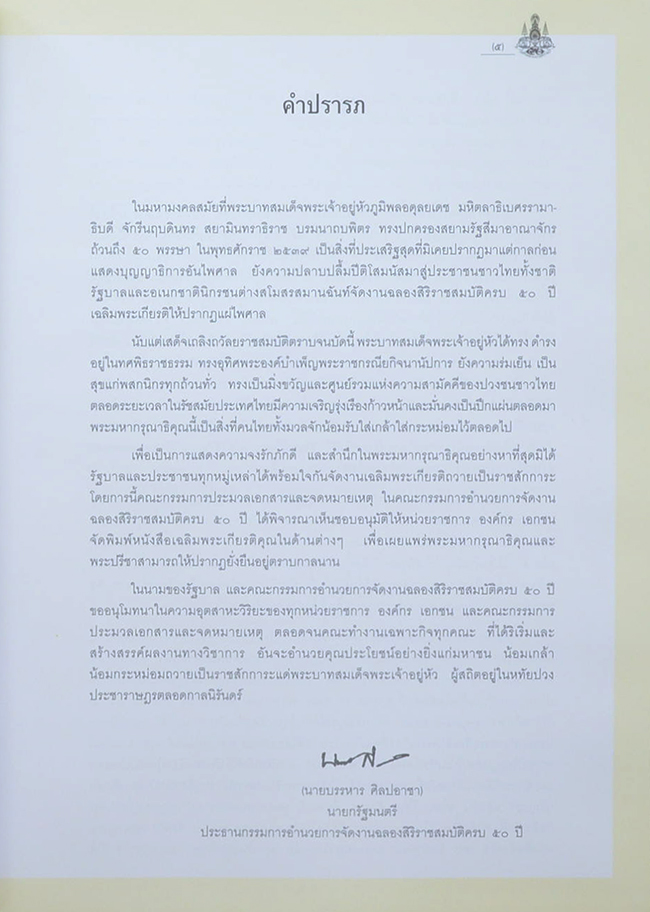 (๕)
คำปรารภ
ในมหามงคลสมัยที่พระบาทสมเด็จพระเจ้าอยู่หัวภูมิพลอดุลยเดช มหิตลาธิเบศรรามา-
ธิบดี จักรีนฤบดินทร สยามินทราธิราช บรมนาถบพิตร ทรงปกครองสยามรัฐสีมาอาณาจักร
ถ้วนถึง ๕๐ พรรษา ในพุทธศักราช ๒๕๓๙ เป็นสิ่งที่ประเสริฐสุดที่มิเคยปรากฏมาแต่กาลก่อน
แสดงบุญญาธิการอันไพศาล ยังความปลาบปลื้มปีติโสมนัสมาสู่ประชาชนชาวไทยทั้งชาติ
รัฐบาลและอเนกชาตินิกรชนต่างสโมสรสมานฉันท์จัดงานฉลองสิริราชสมบัติครบ ๕๐ ปี
เฉลิมพระเกียรติให้ปรากฏแผ่ไพศาล
นับแต่เสด็จเถลิงถวัลยราชสมบัติตราบจนบัดนี้ พระบาทสมเด็จพระเจ้าอยู่หัวได้ทรง ดำรง
อยู่ในทศพิธราชธรรม ทรงอุทิศพระองค์บำเพ็ญพระราชกรณียกิจนานัปการ ยังความร่มเย็น เป็น
สุขแก่พสกนิกรทุกถ้วนทั่ว ทรงเป็นมิ่งขวัญและศูนย์รวมแห่งความสามัคคีของปวงชนชาวไทย
ตลอดระยะเวลาในรัชสมัยประเทศไทยมีความเจริญรุ่งเรืองก้าวหน้าและมั่นคงเป็นปึกแผ่นตลอดมา
พระมหากรุณาธิคุณนี้เป็นสิ่งที่คนไทยทั้งมวลจักน้อมรับใส่เกล้าใส่กระหม่อมไว้ตลอดไป
เพื่อเป็นการแสดงความจงรักภักดี และสำนึกในพระมหากรุณาธิคุณอย่างหาที่สุดมิได้
รัฐบาลและประชาชนทุกหมู่เหล่าได้พร้อมใจกันจัดงานเฉลิมพระเกียรติถวายเป็นราชสักการะ
โดยการนี้คณะกรรมการประมวลเอกสารและจดหมายเหตุ ในคณะกรรมการอำนวยการจัดงาน
ฉลองสิริราชสมบัติครบ ๕๐ ปี ได้พิจารณาเห็นชอบอนุมัติให้หน่วยราชการ องค์กร เอกชน
จัดพิมพ์หนังสือเฉลิมพระเกียรติคุณในด้านต่างๆ เพื่อเผยแพร่พระมหากรุณาธิคุณและ
พระปรีชาสามารถให้ปรากฏยั่งยืนอยู่ตราบกาลนาน
ในนามของรัฐบาล และคณะกรรมการอำนวยการจัดงานฉลองสิริราชสมบัติครบ ๕๐ ปี
ขออนุโมทนาในความอุตสาหะวิริยะของทุกหน่วยราชการ องค์กร เอกชน และคณะกรรมการ
ประมวลเอกสารและจดหมายเหตุ ตลอดจนคณะทำงานเฉพาะกิจทุกคณะ ที่ได้ริเริ่มและ
สร้างสรรค์ผลงานทางวิชาการ อันจะอำนวยคุณประโยชน์อย่างยิ่งแก่มหาชน น้อมเกล้า
น้อมกระหม่อมถวายเป็นราชสักการะแด่พระบาทสมเด็จพระเจ้าอยู่หัว ผู้สถิตอยู่ในหทัยปวง
ประชาราษฎรตลอดกาลนิรันดร์
(นายบรรหาร ศิลปอาชา)
นายกรัฐมนตรี
ประธานกรรมการอำนวยการจัดงานฉลองสิริราชสมบัติครบ ๕๐ ปี